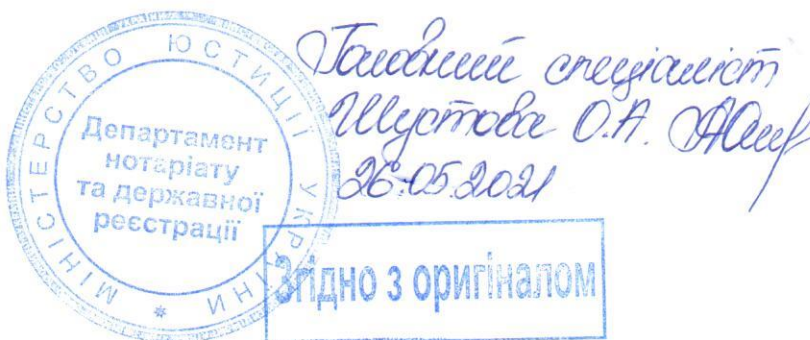 МІНІСТЕРСТВО ЮСТИЦІЇ УКРАЇНИ *
Департамент
нотаріату
та державної
реєстрації
Головний спеціаліст
Шустова О.А.
26.05.2021
Згідно з оригіналом